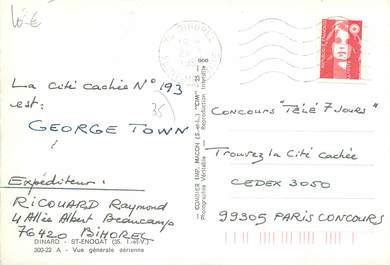 10.€
76 BIHOREL
FRANCE
LA POSTE
La cité cachée N° 193
est:
GEORGE TOWN
35
Expéditeur:
RICOUARD Raymond
4 Allée Albert Beaucamp
76420 BIHOREL
DINARD - ST-ENOGAT (35. I.-et-V.)
300-22 A - Vue générale aérienne
COMBIER IMP. MACON (S.-et-L.) "CIM"
Photographie Véritable - Reproduction Interdite
CONCOURS "TÉLÉ 7 JOURS"
TROUVEZ LA CITÉ CACHÉE
CEDEX 3050
99305 PARIS CONCOURS